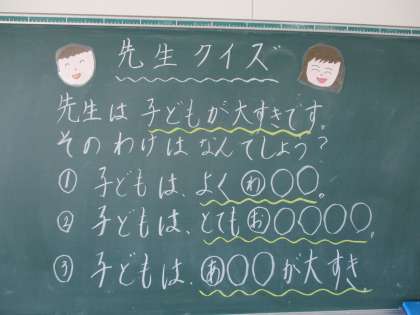 先生クイズ
先生は子どもが大すきです。
そのわけはなんでしょう?
① 子どもは、よくわ〇〇。
② 子どもは、とてもお〇〇〇〇。
③ 子どもは、あ〇〇が大すき